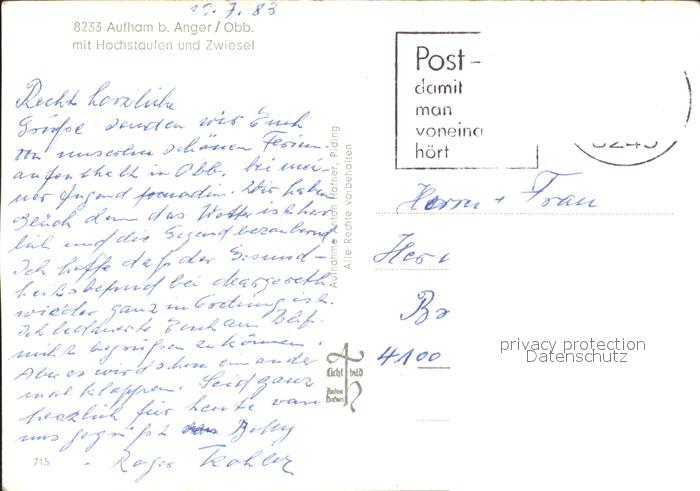 17.7.83
8233 Aufham b. Anger / Obb.
mit Hochstaufen und Zwiesel
Recht herzliche
Grüße senden wir Euch
von unserem schönen Ferien-
aufenthalt in Obb. bei mei-
ner Jugend Wir haben
Glück denn das Wetter ist herr-
lich und die Gegend bezaubernd
Ich hoffe daß der Gesund-
heitsbefund bei Margareth
wieder ganz in Ordnung ist.
Ich bedauerte Euch am Bhf.
nicht begrüßen zu können.
Aber es wird schon ein ander
mal klappen. Seid ganz
herzlich für heute von
uns gegrüßt
Roger Kohler
715
Aufnahme Anton Hafner, Piding
Alle Rechte vorbehalten
Licht bild
Anton
Hafner
Post-
damit
man
voneina
hört
Herrn + Frau
Her
Br
4100
privacy protection
Datenschutz